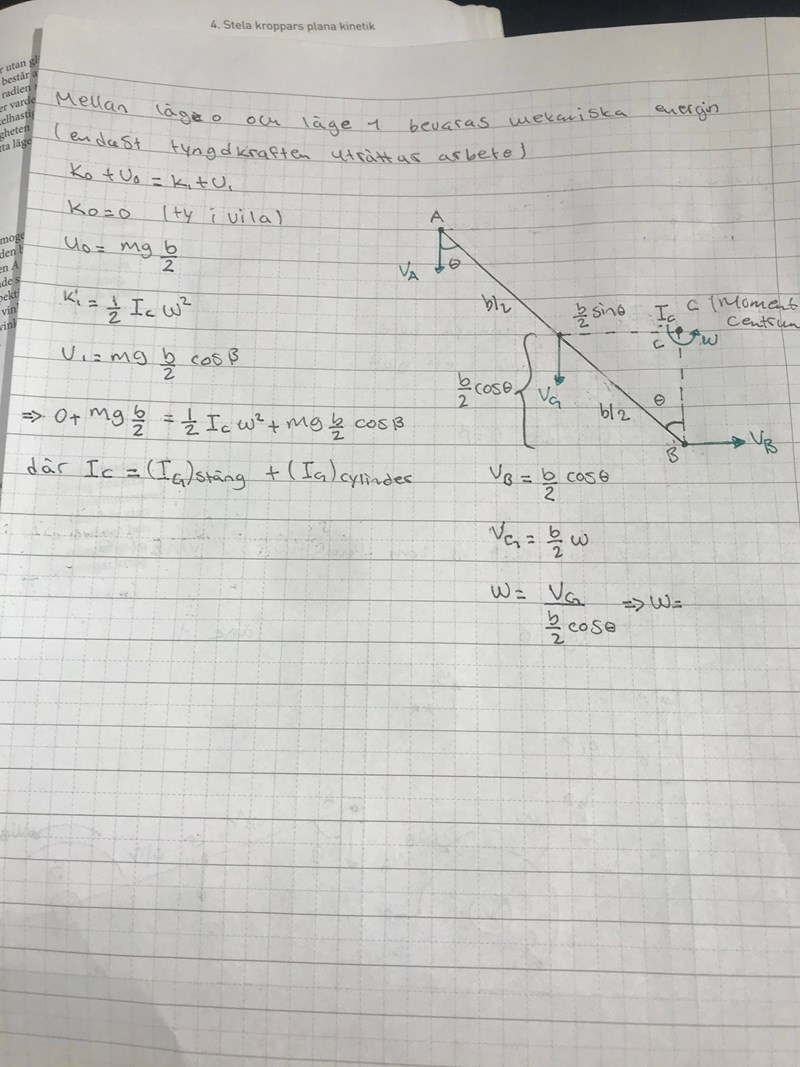 4. Stela kroppars plana kinetik
r utan gl
består a
radien
er varde
elhasti
gheten
ta läge
mog
den
en A
de s
pekt
vin
vin
Mellan läge 0 och läge 1 bevaras mekaniska energin
(endast tyngdkraften uträttas arbete)
K₀ + U₀ = K₁ + U₁
K₀ = 0 (ty i vila)
U₀ = mg b/2
K₁ = 1/2 I_C ω²
V₁ = mg b/2 cos β
⇒ 0 + mg b/2 = 1/2 I_C ω² + mg b/2 cos β
där I_C = (I_G)stång + (I_G)cylinder
A
θ
V_A
b/2
b/2 sinθ
I_C
C (Moment
centrum
C
ω
b/2 cosθ
V_G
b/2
θ
B
V_B
V_B = b/2 cosθ
V_G = b/2 ω
ω = V_G / (b/2 cosθ) ⇒ ω =